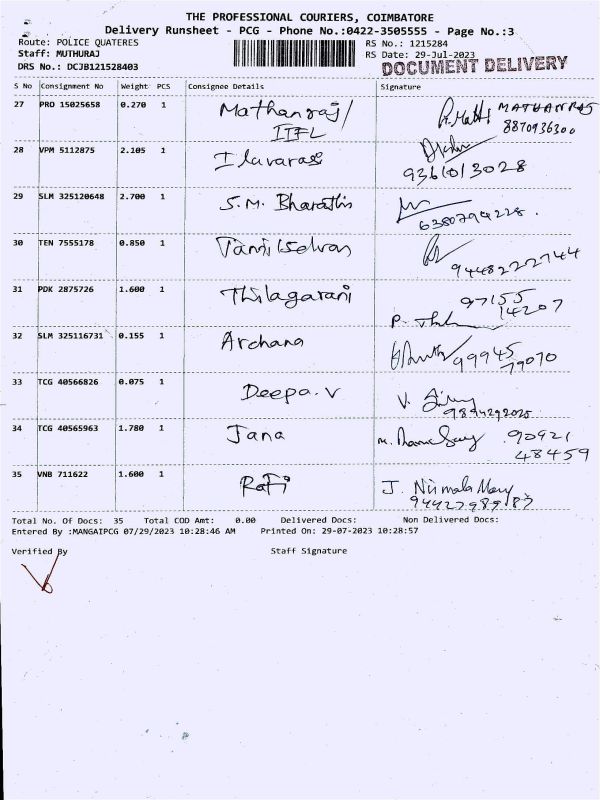 THE PROFESSIONAL COURIERS, COIMBATORE
Delivery Runsheet - PCG - Phone No.:0422-3505555 - Page No.:3
Route: POLICE QUATERES RS No.: 1215284
Staff: MUTHURAJ RS Date: 29-Jul-2023
DRS No.: DCJB121528403 DOCUMENT DELIVERY
S No Consignment No Weight PCS Consignee Details Signature
27 PRO 15025658 0.270 1 Mathanraj/ MATHANRAJ
IIFL 8870936300
28 VPM 5112875 2.105 1 Ilavarasi
9361013028
29 SLM 325120648 2.700 1 S.M. Bharathi
6380794228.
30 TEN 7555178 0.850 1 Tamilselvan
9448222744
31 PDK 2875726 1.600 1 Thilagarani 97155
14207
P.
32 SLM 325116731 0.155 1 Archana 99945
79070
33 TCG 40566826 0.075 1 Deepa.V V.
9894292025
34 TCG 40565963 1.780 1 Jana M. 90921
48459
35 VNB 711622 1.600 1 Rafi J. Nirmala Mary
9442798983
Total No. Of Docs: 35 Total COD Amt: 0.00 Delivered Docs: Non Delivered Docs:
Entered By :MANGAIPCG 07/29/2023 10:28:46 AM Printed On: 29-07-2023 10:28:57
Verified By Staff Signature